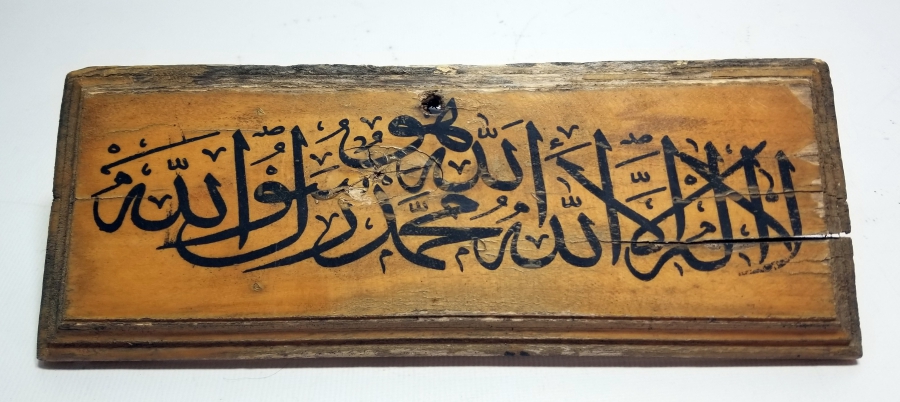 هو الله
لا اله الا الله محمد رسول الله